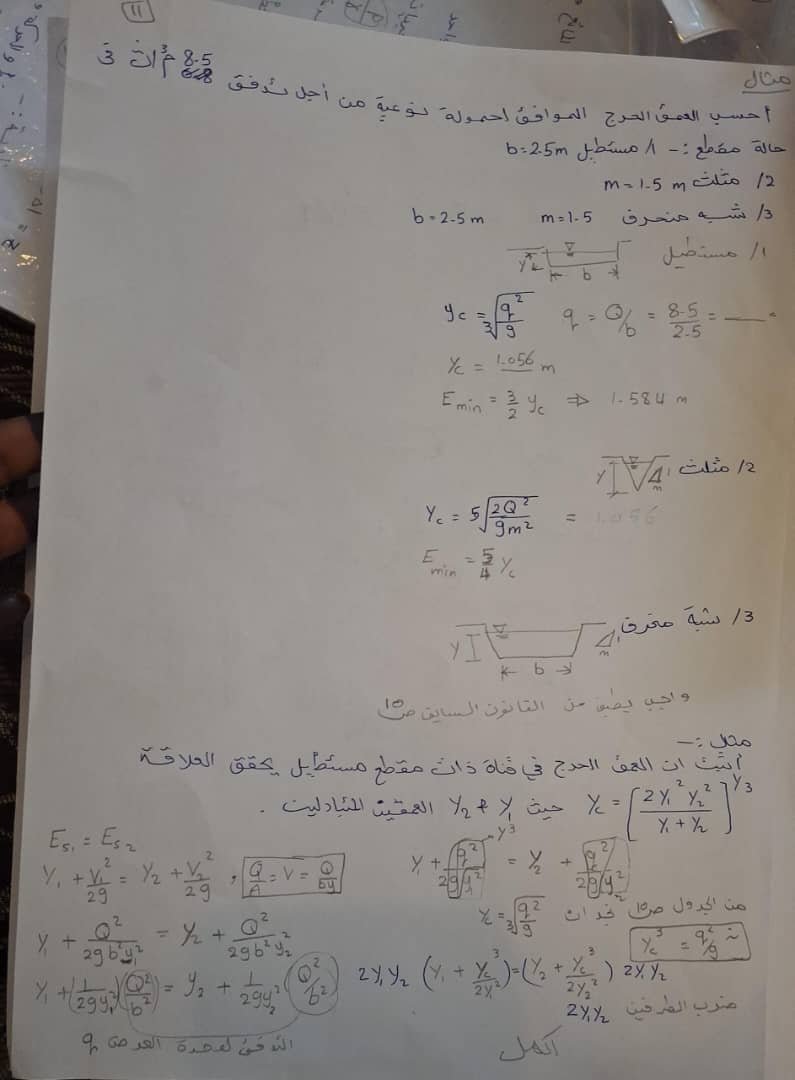 11
مثال
احسب العمق الحرج الموافق لحمولة نوعية من أجل تدفق 8.5 م3/ث في
حالة مقطع :- 1/ مستطيل b=2.5m
2/ مثلث m=1.5 m
3/ شبه منحرف m=1.5 b=2.5 m
1/ مستطيل
y b
yc = ∛(q²/g) q = Q/b = 8.5/2.5 = ——
yc = 1.056 m
Emin = 3/2 yc ⇒ 1.584 m
2/ مثلث
y 1 m
Yc = ⁵√(2Q²/gm²) = 1.056
Emin = 5/4 Yc
3/ شبة منحرف
y b 1 m
واجب يطبق من القانون السابق ص10
مثال :-
أثبت ان العمق الحرج في قناة ذات مقطع مستطيل يحقق العلاقة
Yc = [2Y₁²Y₂² / (Y₁+Y₂)]^1/3 حيث Y₁ & Y₂ العمقين المتبادلين .
Es₁ = Es₂
Y₁ + V₁²/2g = Y₂ + V₂²/2g , Q/A = V = Q/by
Y₁ + Q²/2gb²y₁² = Y₂ + Q²/2gb²y₂²
Y₁ + (1/2gy₁²)(Q²/b²) = Y₂ + 1/2gy₂² (Q²/b²)
التدفق لوحدة العرض q
Y₁ + q²/2gy₁² = Y₂ + q²/2gy₂²
من الجدول ص10 نجد ان yc = ∛(q²/g)
∴ yc³ = q²/g
2Y₁Y₂ (Y₁ + Yc³/2Y₁²) = (Y₂ + Yc³/2Y₂²) 2Y₁Y₂
ضرب الطرفين 2Y₁Y₂
اكمل